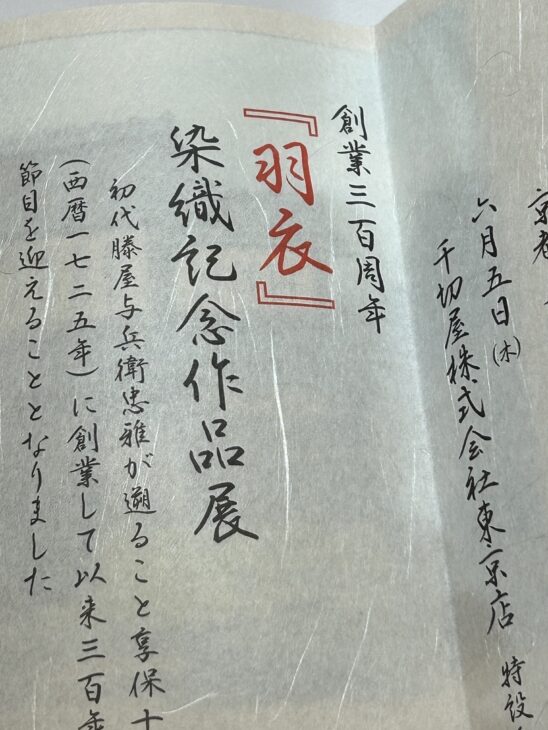 京都
六月五日(木)
千切屋株式会社東京店 特設
創業三百周年
『羽衣』
染織記念作品展
初代勝屋与兵衛忠雅が遡ること享保十
(西暦一七二五年)に創業して以来三百年
節目を迎えることとなりました